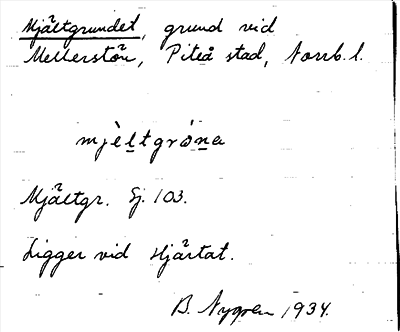 Mjältgrundet, grund vid
Mellerstön, Piteå stad, Norrb. l.
mjèltgróna
Mjältgr. Sj. 103.
Ligger vid Hjärtat.
B. Nygren 1934.